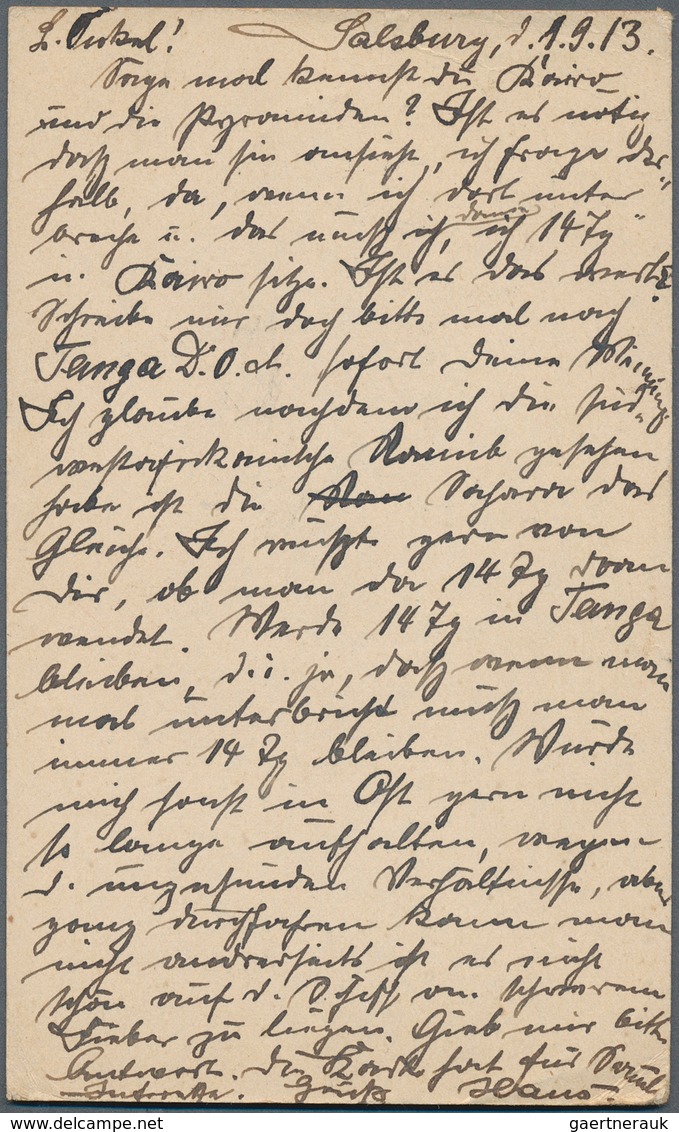 L. Onkel! Salzburg, d. 1.9.13.
Sage mal kennst du Kairo
und die Pyramiden? Ist es nötig
daß man sie ansieht, ich frage des„
halb, da, wenn ich dort unter
breche u. das muß ich, dann ich 14 Tg
in Kairo sitze. Ist es das wert?
Schreibe mir doch bitte mal nach
Tanga D.O.A. sofort deine Meinung
Ich glaube nachdem ich die süd„
westafrikanische Namib gesehen
habe ist die Sahara das
Gleiche. Ich wüßte gern von
Dir, ob man da 14 Tg daran
wendet. Werde 14 Tg in Tanga
bleiben, d.i. ja, daß wenn man
mal unterbricht muß man
immer 14 Tg bleiben. Würde
mich sonst in Ost gern nicht
so lange aufhalten, wegen
d. ungesunden Verhältnisse, aber
ganz durchfahren kann man
nicht andrerseits ist es nicht
schön auf d. Schiff m. schwerem
Fieber zu liegen. Gieb mir bitte
Antwort. Die Karte hat für
Interesse. Gruß Hans.
gaertnerauk